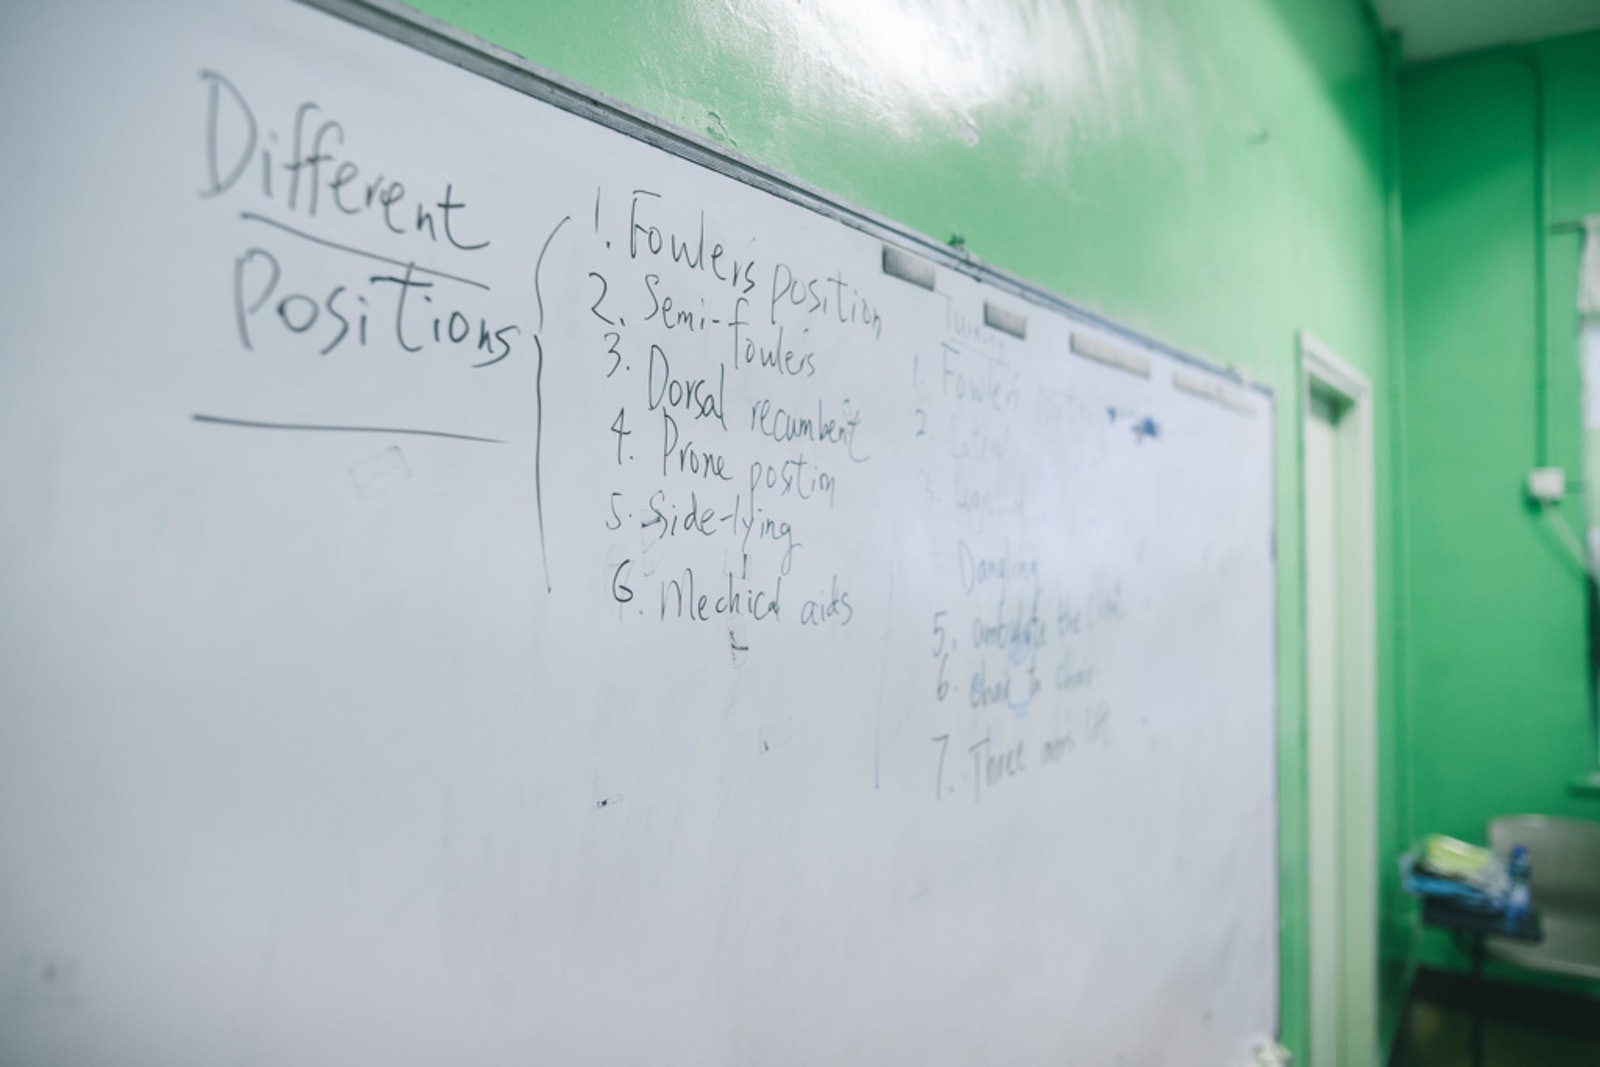 Different
Positions
1. Fowler's position
2. Semi-fowler's
3. Dorsal recumbent
4. Prone position
5. Side-lying
6. Mechical aids
Turning
1. Fowler's
2. Lateral
3.
Dangling
5. ambulate the
6. to
7. Three